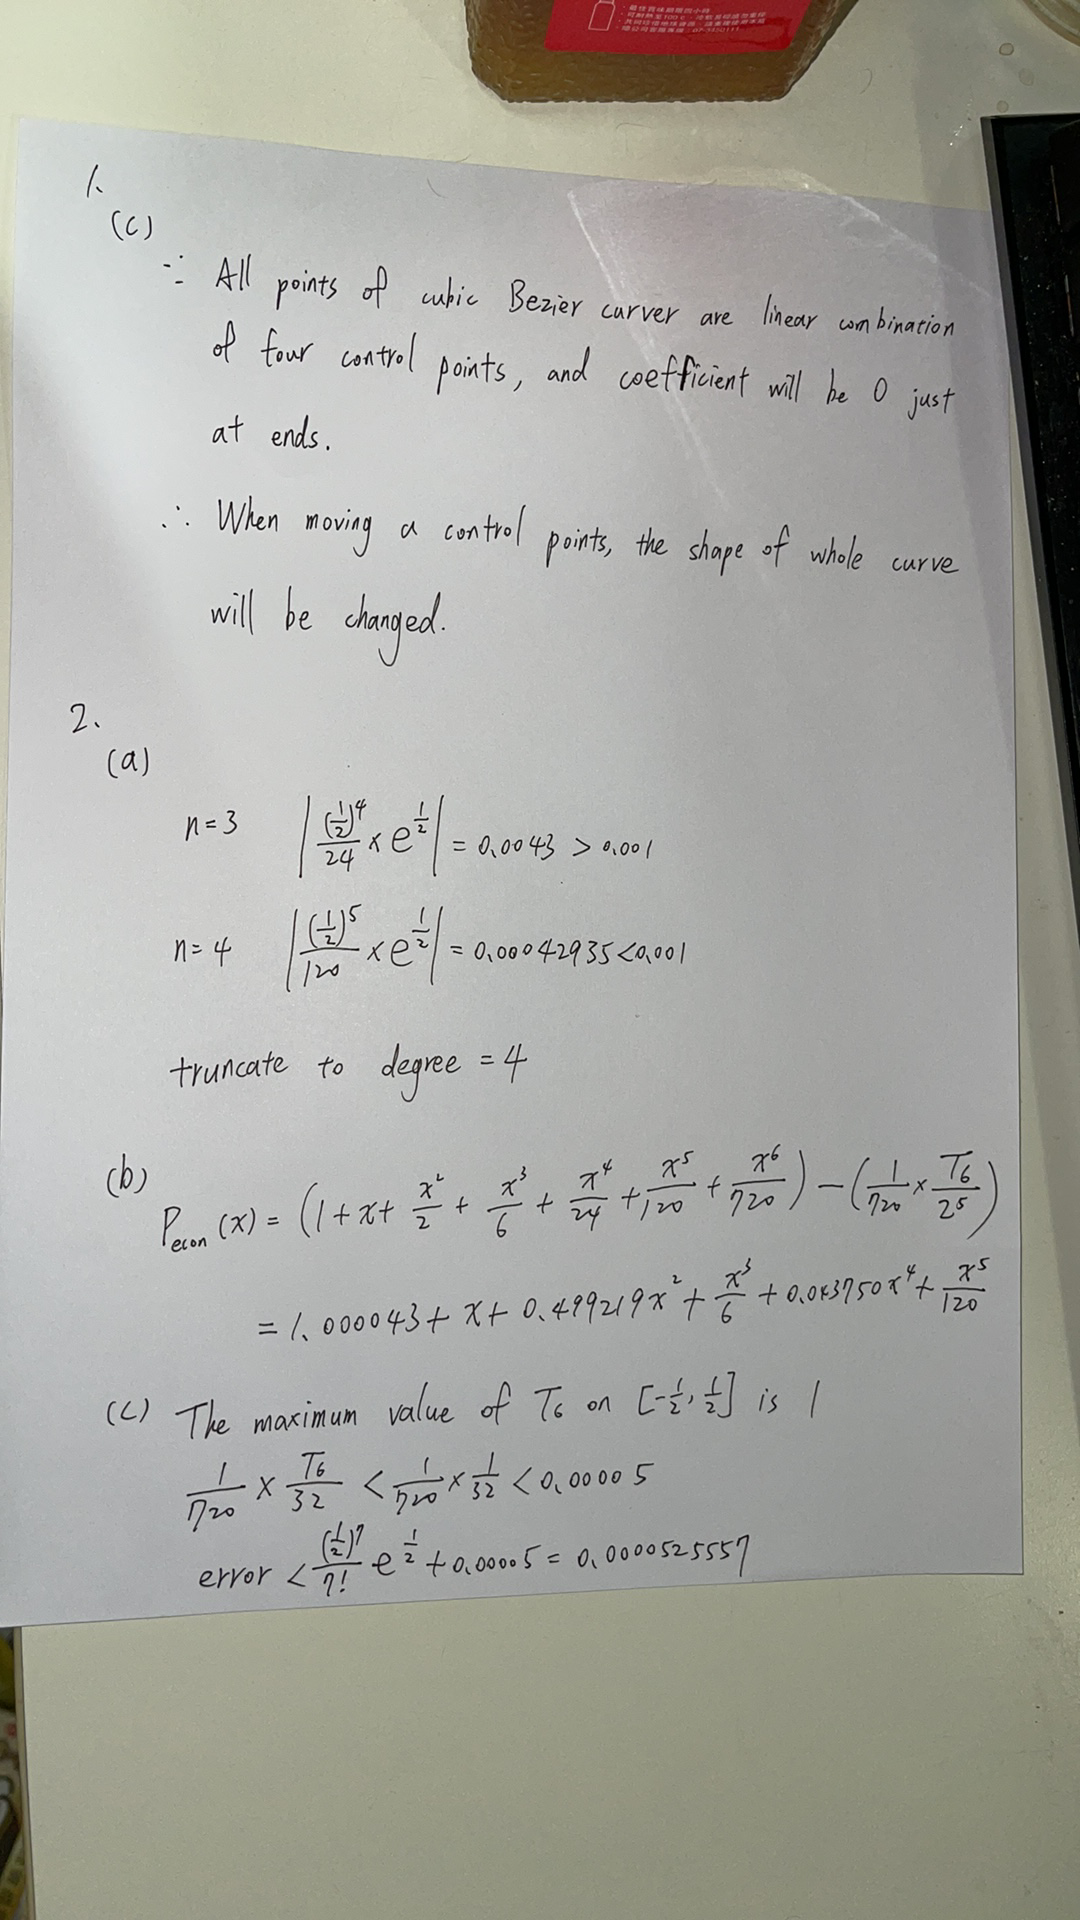 最佳賞味期限四小時
1.
(c)
∵ All points of cubic Bezier curver are linear combination
of four control points, and coefficient will be 0 just
at ends.
∴ When moving a control points, the shape of whole curve
will be changed.
2.
(a)
n=3 |(1/2)^4/24 × e^(1/2)| = 0.0043 > 0.001
n=4 |(1/2)^5/120 × e^(1/2)| = 0.00042935 < 0.001
truncate to degree = 4
(b)
P_econ (x) = (1 + x + x²/2 + x³/6 + x⁴/24 + x⁵/120 + x⁶/720) − (1/720 × T₆/2⁵)
= 1.000043 + x + 0.499219x² + x³/6 + 0.043750x⁴ + x⁵/120
(c) The maximum value of T₆ on [-1/2, 1/2] is 1
1/720 × T₆/32 < 1/720 × 1/32 < 0.00005
error < (1/2)^7/7! e^(1/2) + 0.00005 = 0.0000525557